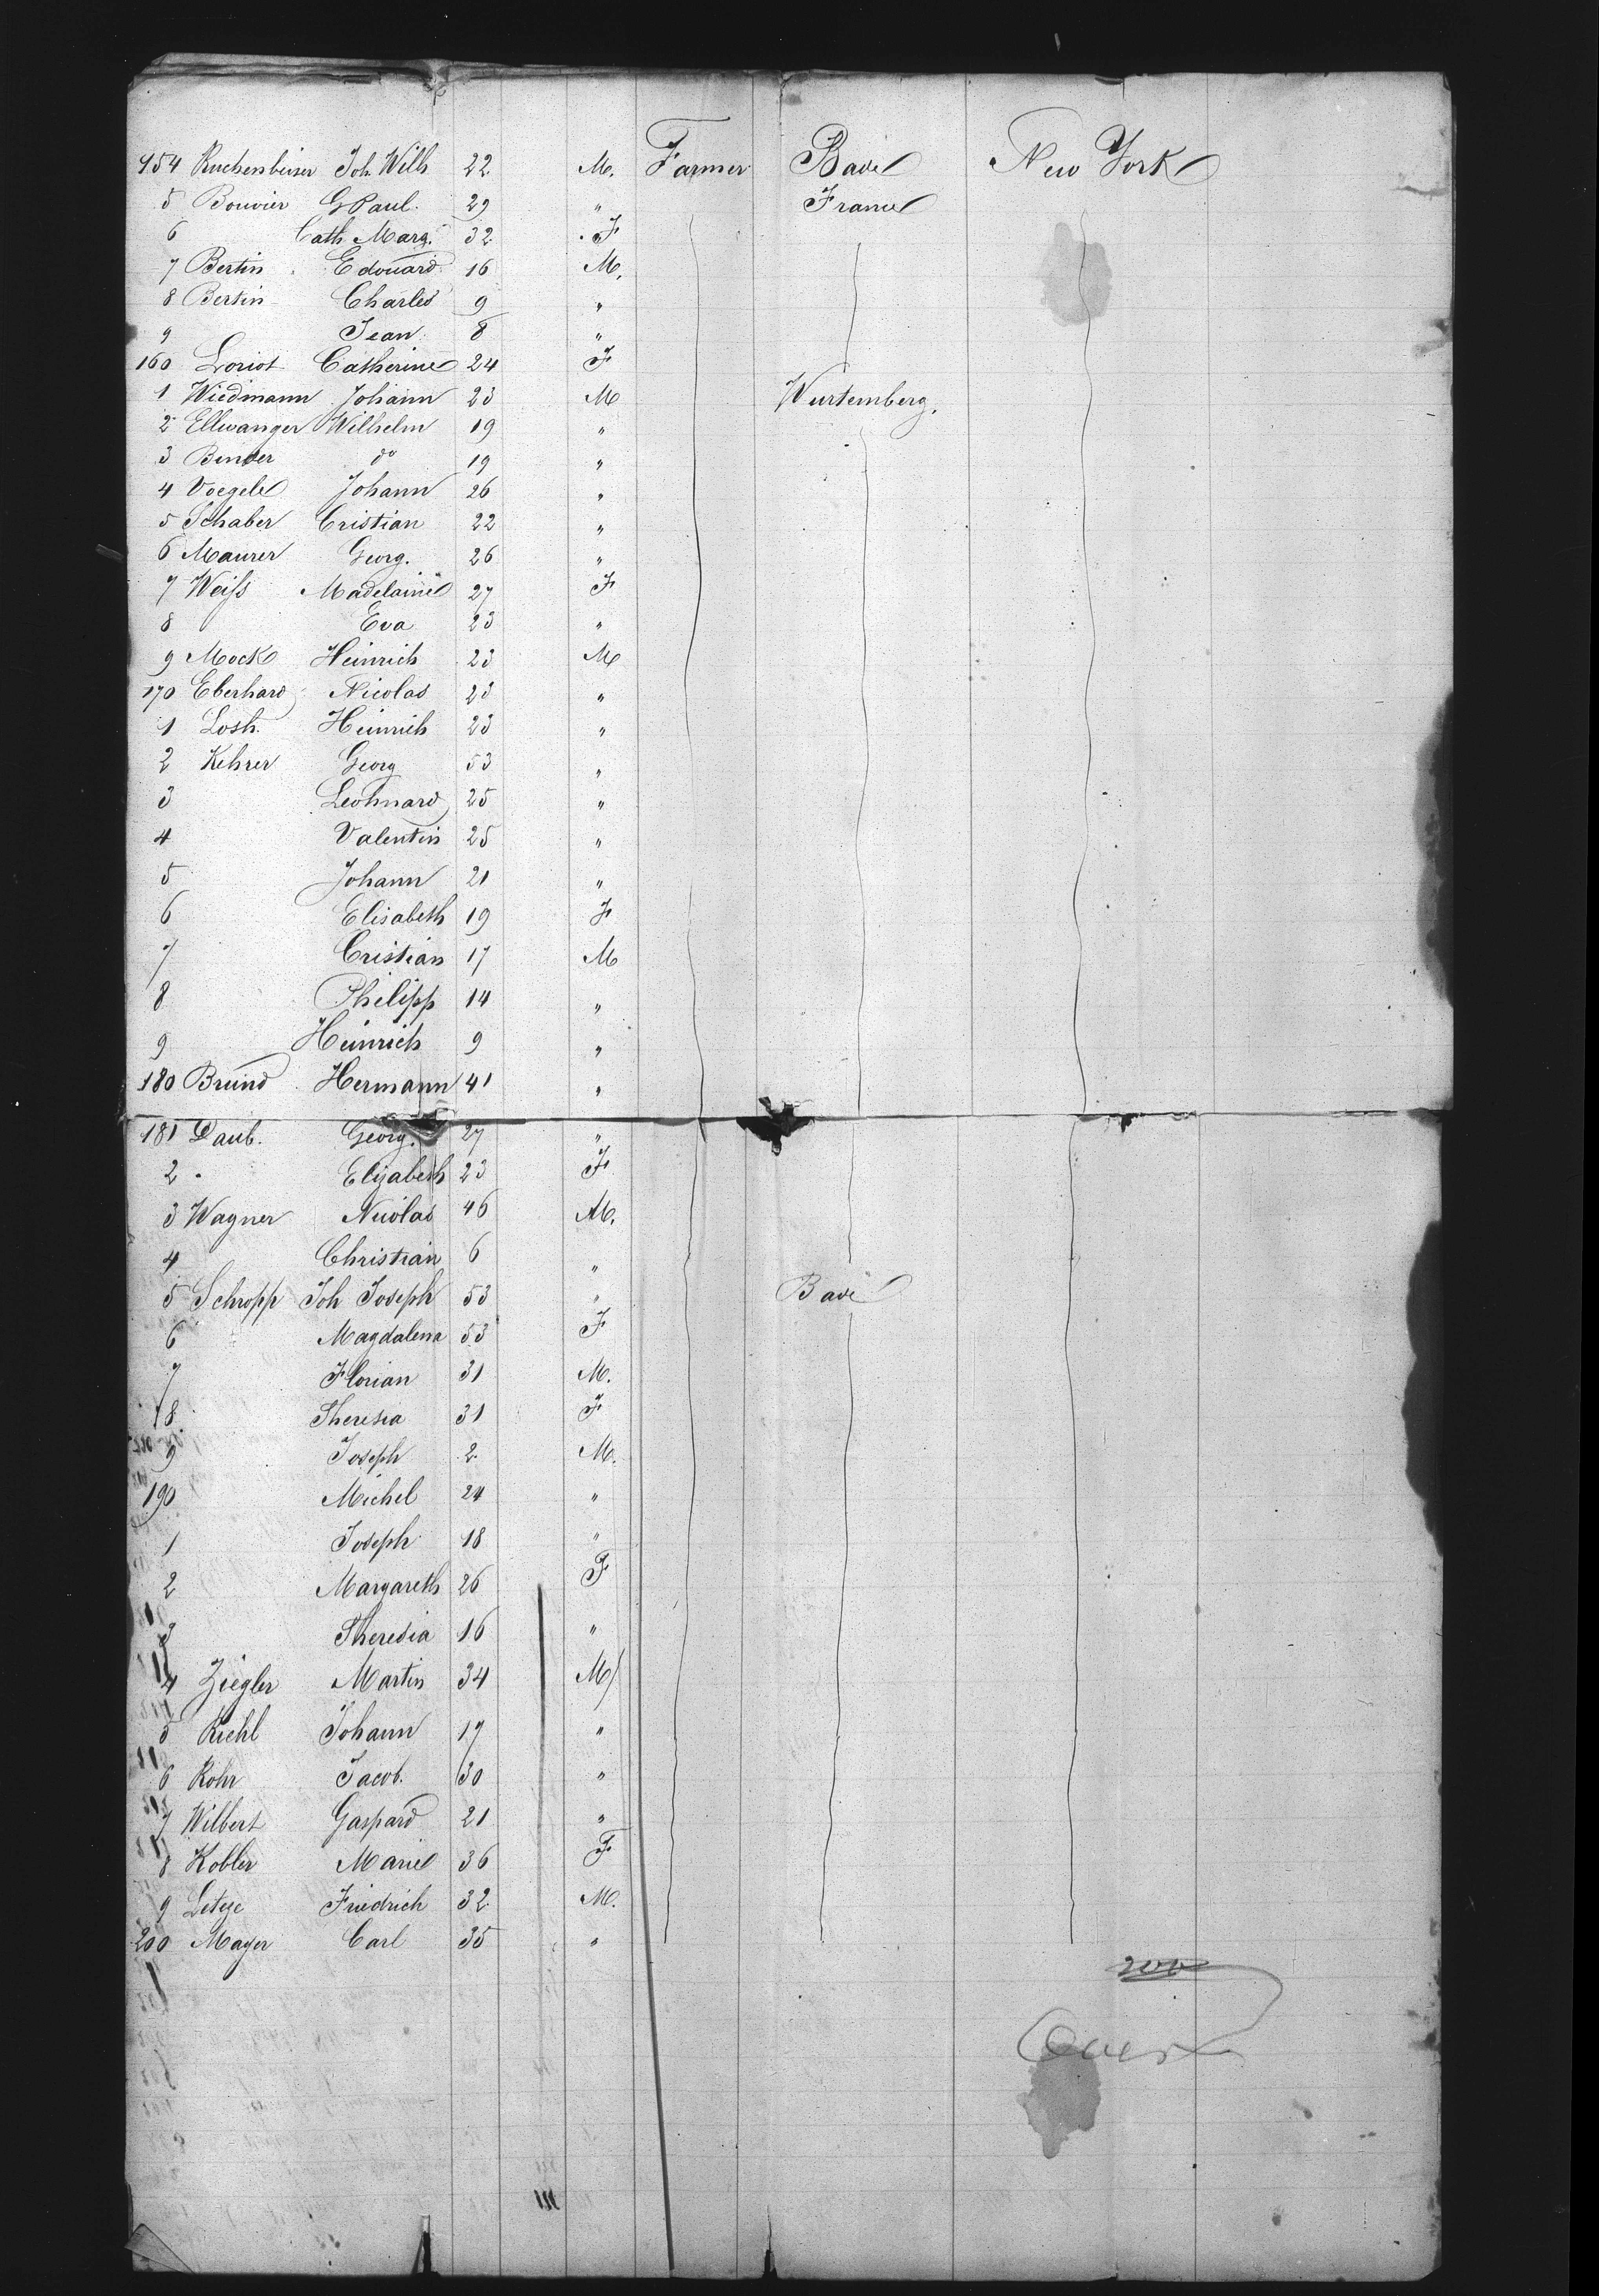 154 Ruchenbeiser Joh Wilh 22 M. Farmer Bade New York
5 Bouvier G Paul. 29 " France
6 Cath Marg. 32 F
7 Bertin Edouard 16 M.
8 Bertin Charles 9 "
9 Jean 8 "
160 Loriot Catherine 24 F
1 Wiedmann Johann 23 M Wurtemberg.
2 Ellwanger Wilhelm 19 "
3 Bender do 19 "
4 Voegele Johann 26 "
5 Schaber Cristian 22 "
6 Maurer Georg. 26 "
7 Weiss Madelaine 27 F
8 Eva 23 "
9 Mock Heinrich 23 M
170 Eberhard Nicolas 23 "
1 Losh. Heinrich 23 "
2 Kehrer Georg 53 "
3 Leohnard 25 "
4 Valentin 25 "
5 Johann 21 "
6 Elisabeth 19 F
7 Cristian 17 M
8 Philipp 14 "
9 Heinrich 9 "
180 Brund Hermann 41 "
181 Daub. Georg. 27 "
2 Elizabeth 23 F
3 Wagner Nicolas 46 M.
4 Christian 6 "
5 Schropp Joh Joseph 53 " Bade
6 Magdalena 53 F
7 Florian 31 M.
8 Theresia 31 F
9 Joseph 2. M.
190 Michel 24 "
1 Joseph 18 "
2 Margareth 26 F
3 Theresia 16 "
4 Ziegler Martin 34 M
5 Riehl Johann 17 "
6 Rohr Jacob. 30 "
7 Wilbert Gaspard 21 "
8 Kobler Marie 36 F
9 Letzge Friedrich 32 M.
200 Mayer Carl 35 "
200
Over